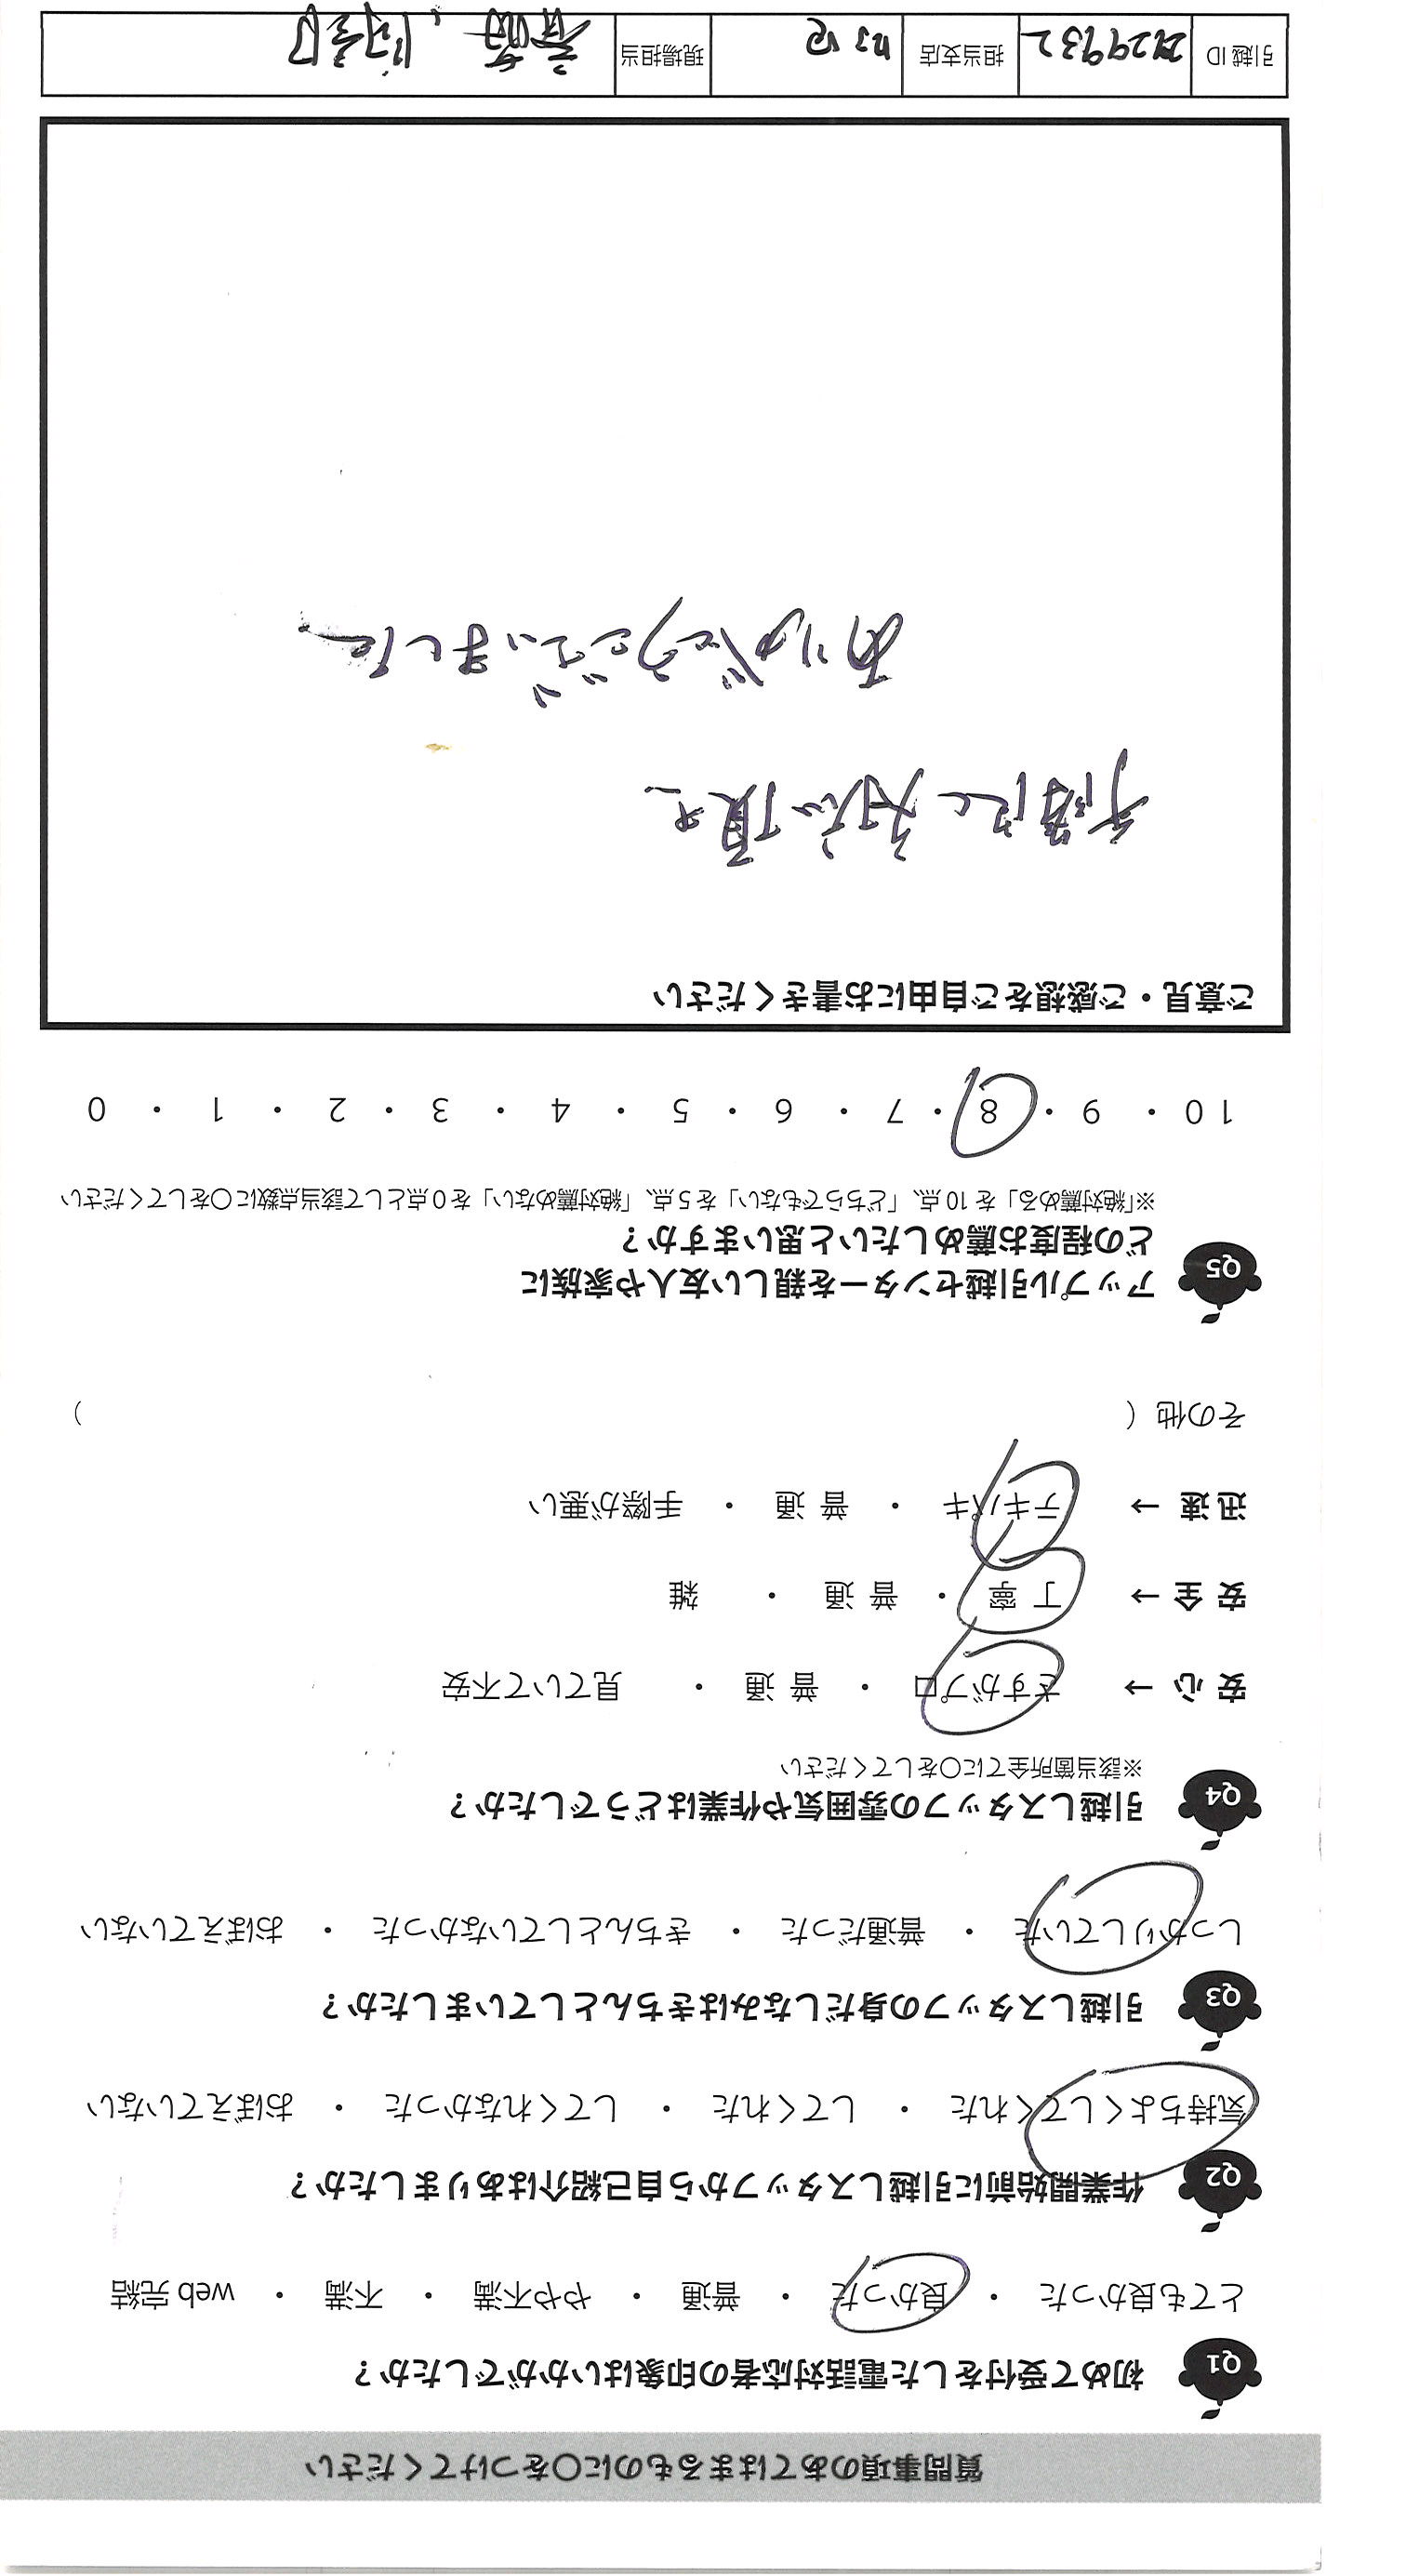 質問事項のあてはまるものに○をつけてください
Q1 初めて受付をした電話対応者の印象はいかがでしたか？
とても良かった ・ 良かった ・ 普通 ・ やや不満 ・ 不満 ・ web 完結
Q2 作業開始前に引越しスタッフから自己紹介はありましたか？
気持ちよくしてくれた ・ してくれた ・ してくれなかった ・ おぼえていない
Q3 引越しスタッフの身だしなみはきちんとしていましたか？
しっかりしていた ・ 普通だった ・ きちんとしていなかった ・ おぼえていない
Q4 引越しスタッフの雰囲気や作業はどうでしたか？
※該当箇所全てに○をしてください
安心→ さすがプロ ・ 普通 ・ 見ていて不安
安全→ 丁寧 ・ 普通 ・ 雑
迅速→ テキパキ ・ 普通 ・ 手際が悪い
その他（ ）
Q5 アップル引越センターを親しい友人や家族に
どの程度お薦めしたいと思いますか？
※「絶対薦める」を 10 点、「どちらでもない」を 5 点、「絶対薦めない」を 0 点として該当点数に○をしてください
10 ・ 9 ・ 8 ・ 7 ・ 6 ・ 5 ・ 4 ・ 3 ・ 2 ・ 1 ・ 0
ご意見・ご感想をご自由にお書きください
対応頂き
ありがとうございました
引越 ID 担当支店 現場担当